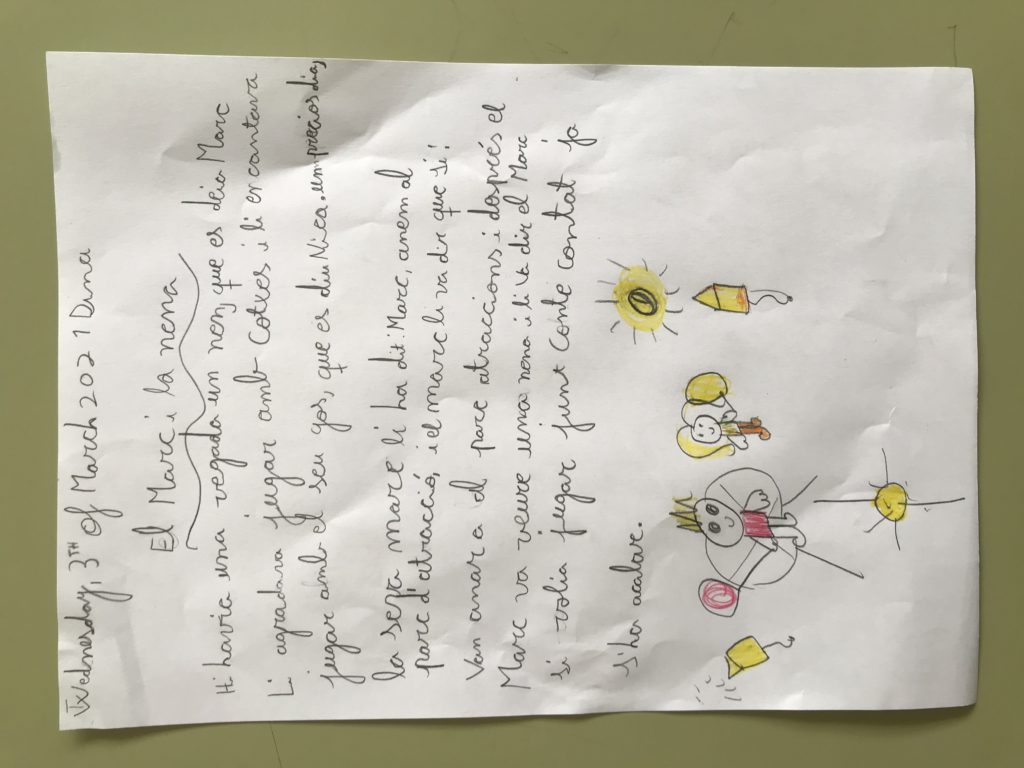 Wednesday, 3TH of March 2021 Duna
El Marc i la nena
Hi havia una vegada un nen, que es deia Marc
Li agradava jugar amb cotxes i li encantava
jugar amb el seu gos, que es diu Nica. um precios dia,
la seva mare li ha dit: Marc, anem al
parc d'atracció, i el marc li va dir que si!
Van anar a el parc atraccions i després el
Marc va veure una nena i li va dir el Marc
si volia jugar junt conte contat ja
s'ha acabat.